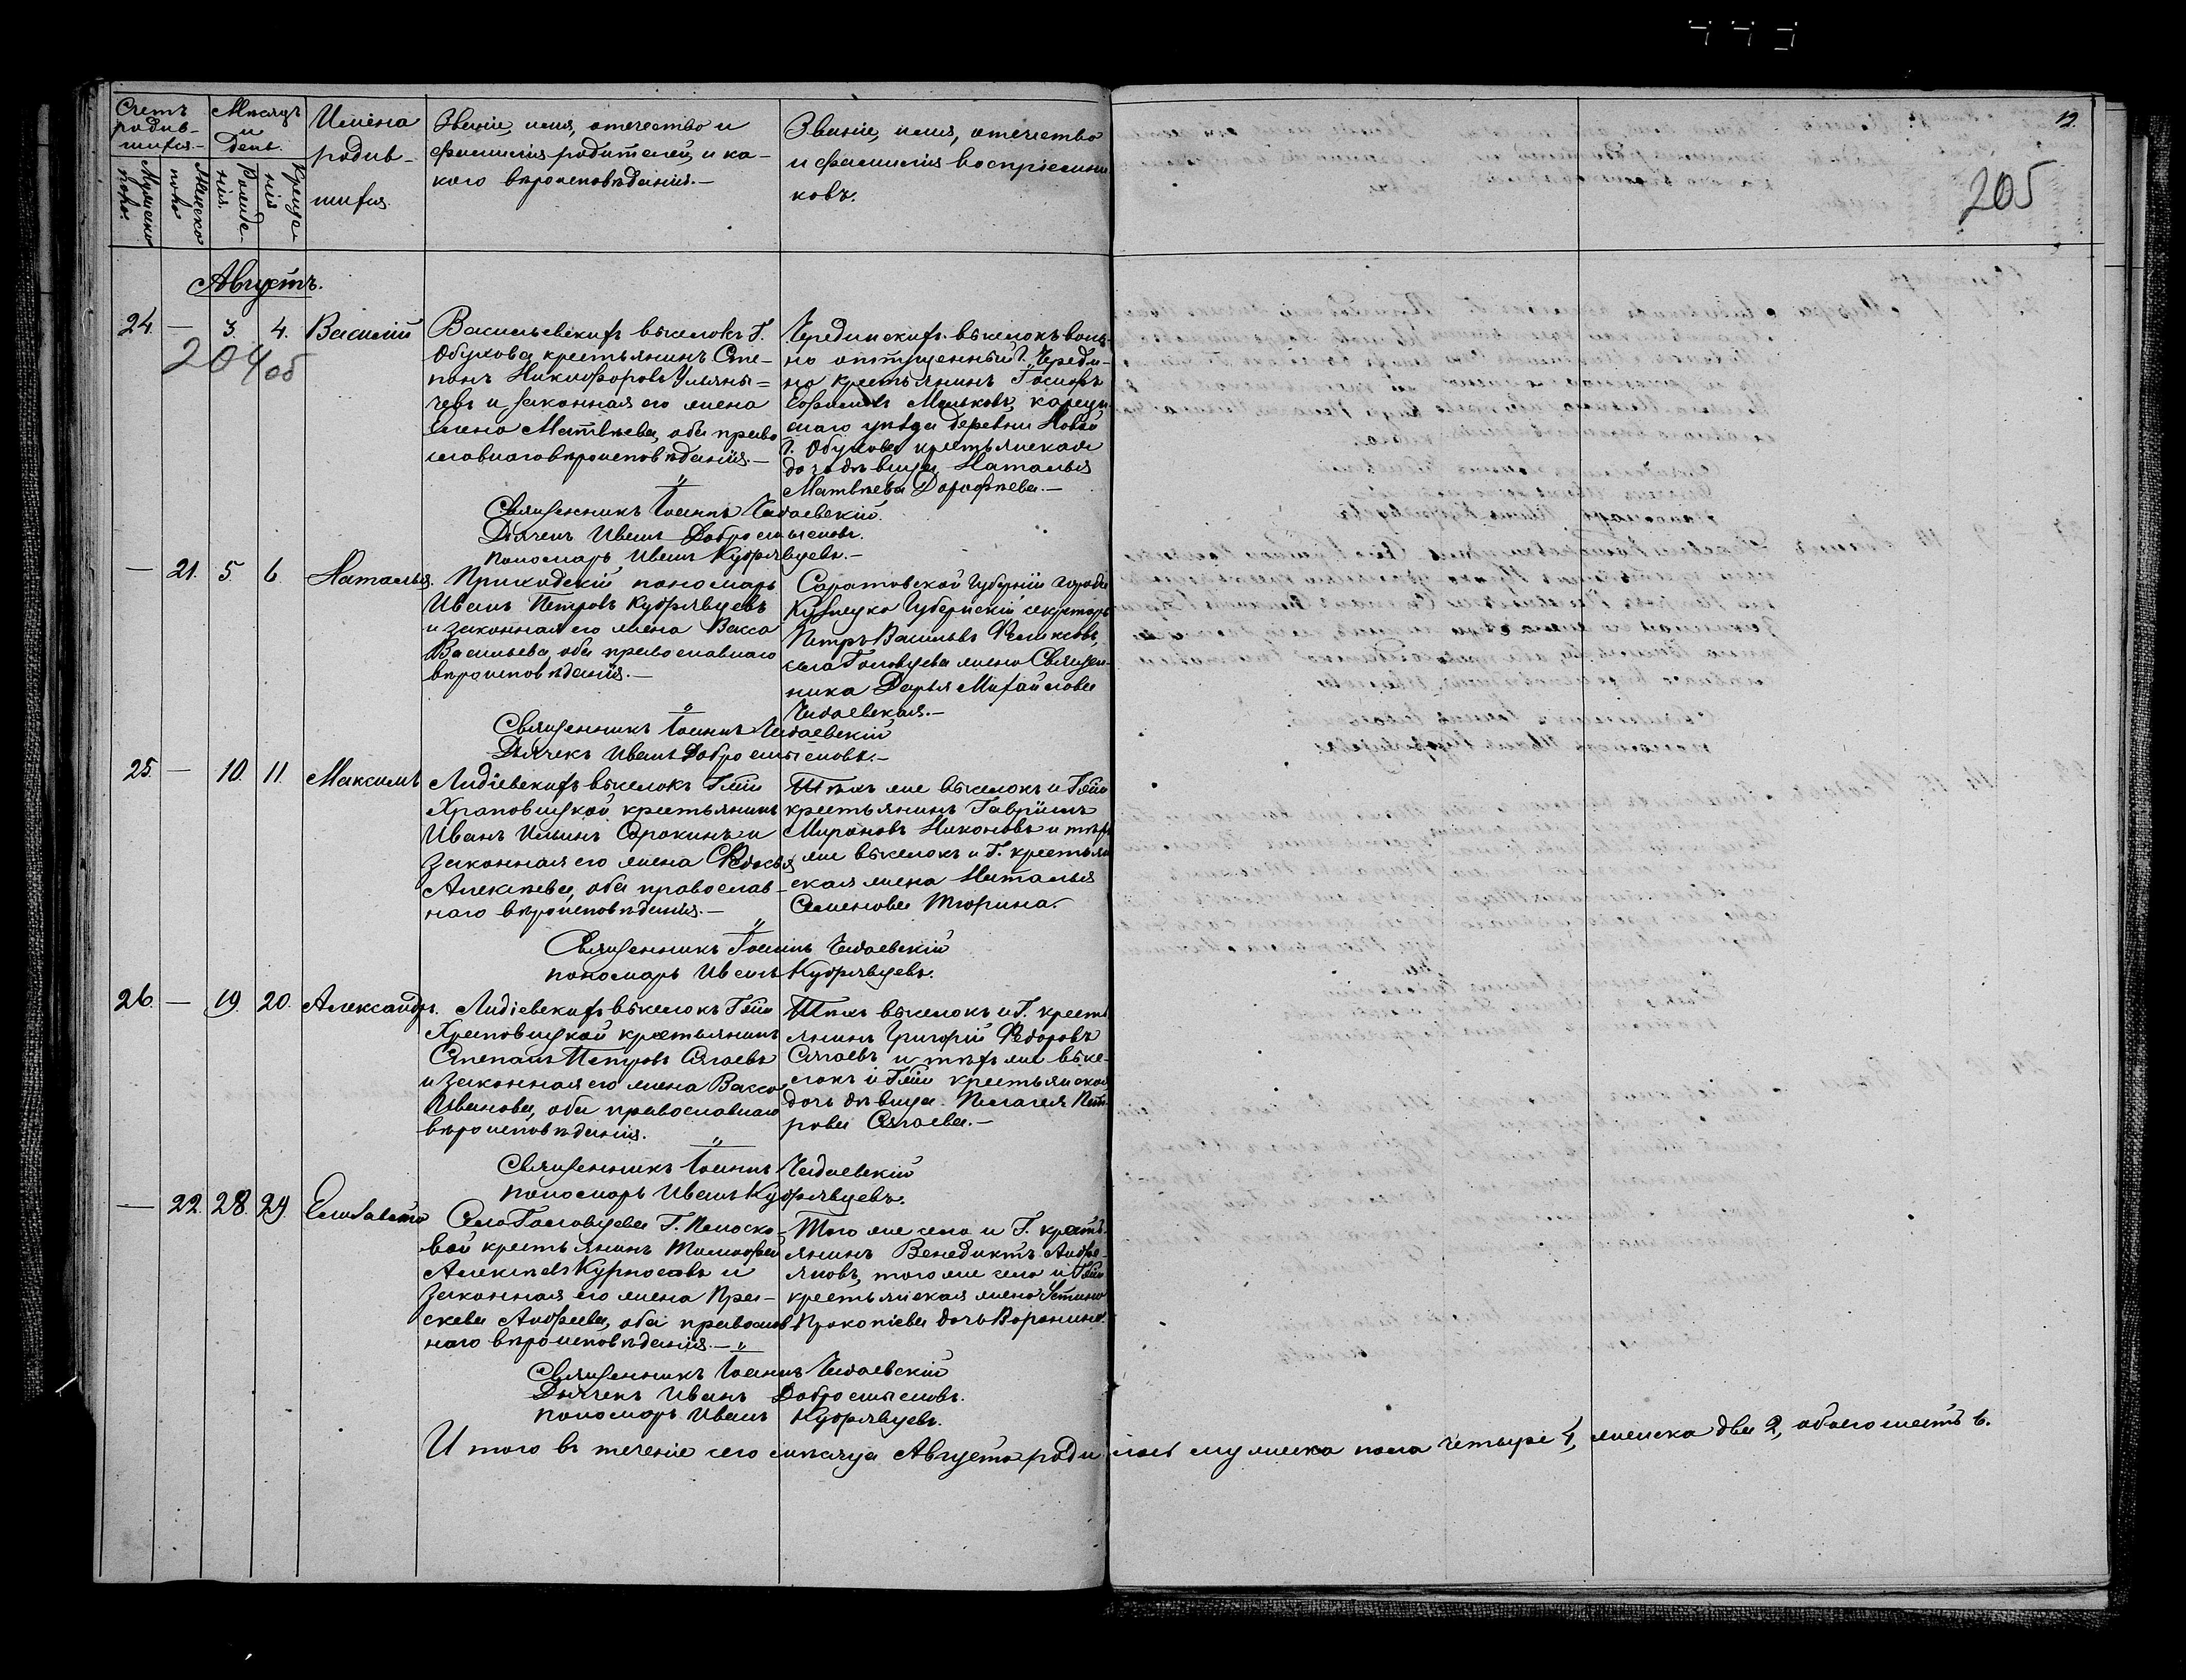 Счетъ родив-
шихся.
Мужеска пола.
Женска пола
Месяцъ
и
день.
Рожде-
нія.
Креще-
нія
Имена
родив-
шихся.
Званіе, имя, отечество и
фамилія родителей, и ка-
кого вѣроисповѣданія.—
Званіе, имя, отечество
и фамилія воспріемни
ковъ.
12.
205
Августъ.
24. — 3. 4. Василій
204об
Васильевскихъ выселокъ Г.
Обухова крестьянинъ Сте-
панъ Никифоровъ
и законная его жена
Елена Матвѣева, оба право
славнаго вѣроисповѣданія.—
выселокъ воль-
но отпущенный Г.
крестьянинъ Іосифъ
Ефимовъ Маньковъ,
уѣзда деревни Новой
Г. Обухова крестьянская
дочь дѣвица Наталья
Матвѣева Дорофѣева.—
Священникъ Іоаннъ Чадаевскій.
Дьячекъ Иванъ Добросмысловъ.
пономарь Иванъ Кудрявцевъ.—
— 21. 5. 6. Наталья.
Приходскій пономарь
Иванъ Петровъ Кудрявцевъ
и законная его жена Васса
Васильева, оба православнаго
вѣроисповѣданія.—
Саратовской Губерніи города
Кузнецка Губернскій секретарь
Петръ Васильевъ Феликсовъ,
села Головцева жена Священ-
ника Дарья Михайлова
Чадаевская.—
Священникъ Іоаннъ Чадаевскій
Дьячекъ Иванъ Добросмысловъ.—
25. — 10. 11. Максимъ
Лидіевскихъ выселокъ Гжи
Храповицкой крестьянинъ
Иванъ Ильинъ Сорокинъ и
законная его жена Федосья
Алексѣева, оба православ-
наго вѣроисповѣданія.—
Тѣхъ же выселокъ и Гжи
крестьянинъ Гавріилъ
Мироновъ Никоновъ и тѣхъ
же выселокъ и Г. крестьян
ская жена Наталья
Семенова Тюрина.
Священникъ Іоаннъ Чадаевскій
пономарь Иванъ Кудрявцевъ.
26. — 19. 20. Александръ.
Лидіевскихъ выселокъ Гжи
Храповицкой крестьянинъ
Степанъ Петровъ Сягаевъ
и законная его жена Васса
Иванова, оба православнаго
вѣроисповѣданія.
Тѣхъ выселокъ и Г. кресть
янинъ Григорій Федоровъ
Сягаевъ и тѣхъ же высе-
локъ и Гжи крестьянская
дочь дѣвица Пелагея Пет-
рова Сягаева.—
Священникъ Іоаннъ Чадаевскій
пономарь Иванъ Кудрявцевъ.
— 22. 28. 29. Елисавета
Села Головцева Г.
крестьянинъ Тимофей
Алексѣевъ Курносовъ и
законная его жена Прас-
кева Андреева, оба православ
наго вѣроисповѣданія.—
Того же села и Г. кресть-
янинъ Венедиктъ Андре-
яновъ, того же села и Гжи
крестьянская жена Устинья
Прокопіева дочь Воронина.
Священникъ Іоаннъ Чадаевскій
Дьячекъ Иванъ Добросмысловъ.
пономарь Иванъ Кудрявцевъ.
Итого въ теченіе сего месяца Августа родилось мужеска пола четыре 4, женска два 2, обоего шесть 6.